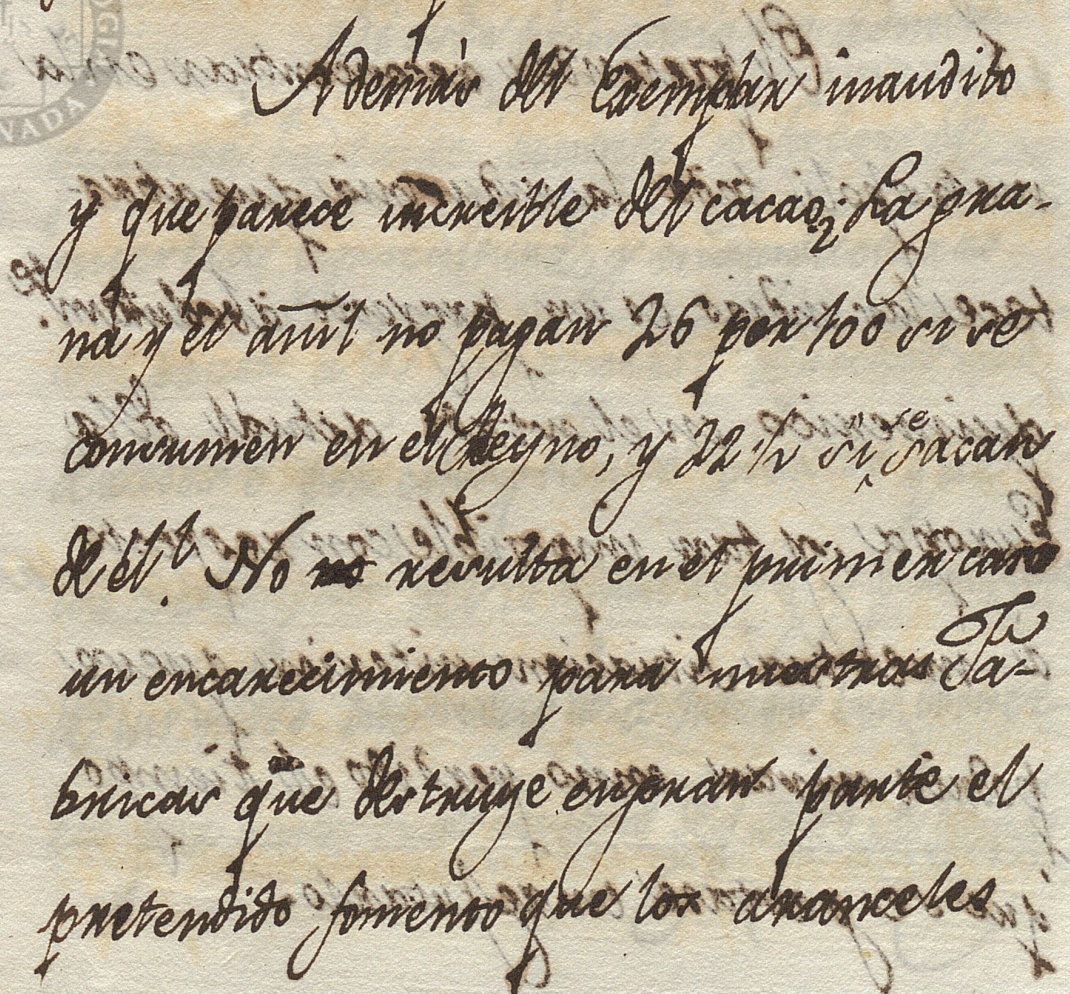 VADA
Además del Exemplar inaudito
y que parece increible del cacao; La gra-
na y el añil no pagan 26 por 100 si se
consumen en el Reyno, y 22 ½ si se sacan
de él? No resulta en el primer caso
un encarecimiento para nuestras Fa-
bricas que destruye en gran parte el
pretendido fomento que los aranceles